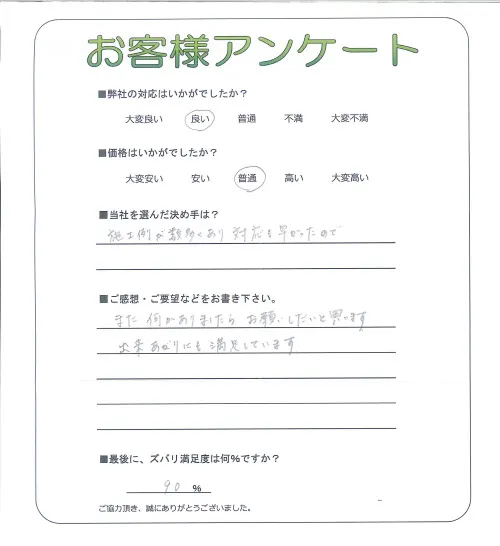 お客様アンケート
■弊社の対応はいかがでしたか?
大変良い 良い 普通 不満 大変不満
■価格はいかがでしたか?
大変安い 安い 普通 高い 大変高い
■当社を選んだ決め手は?
施工例が数多くあり 対応も早かったので
■ご感想・ご要望などをお書き下さい。
また 何かありましたら お願いしたいと思います
出来あがりにも 満足しています
■最後に、ズバリ満足度は何%ですか?
90 %
ご協力頂き、誠にありがとうございました。